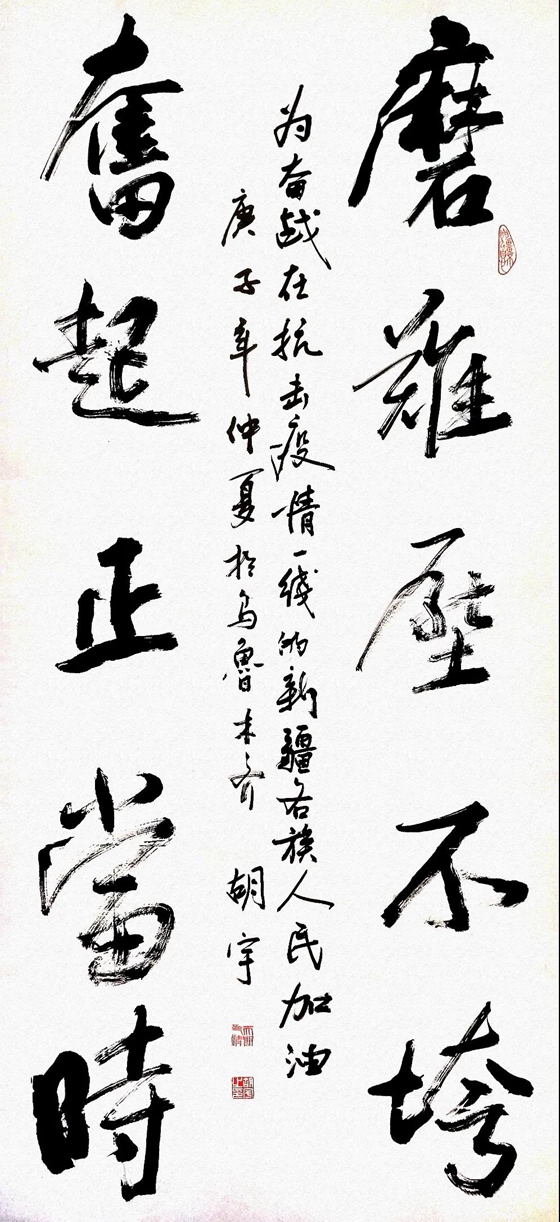 磨難壓不垮
为奋战在抗击疫情一线的新疆各族人民加油
庚子年仲夏於乌魯木齐 胡宇
奮起正當時